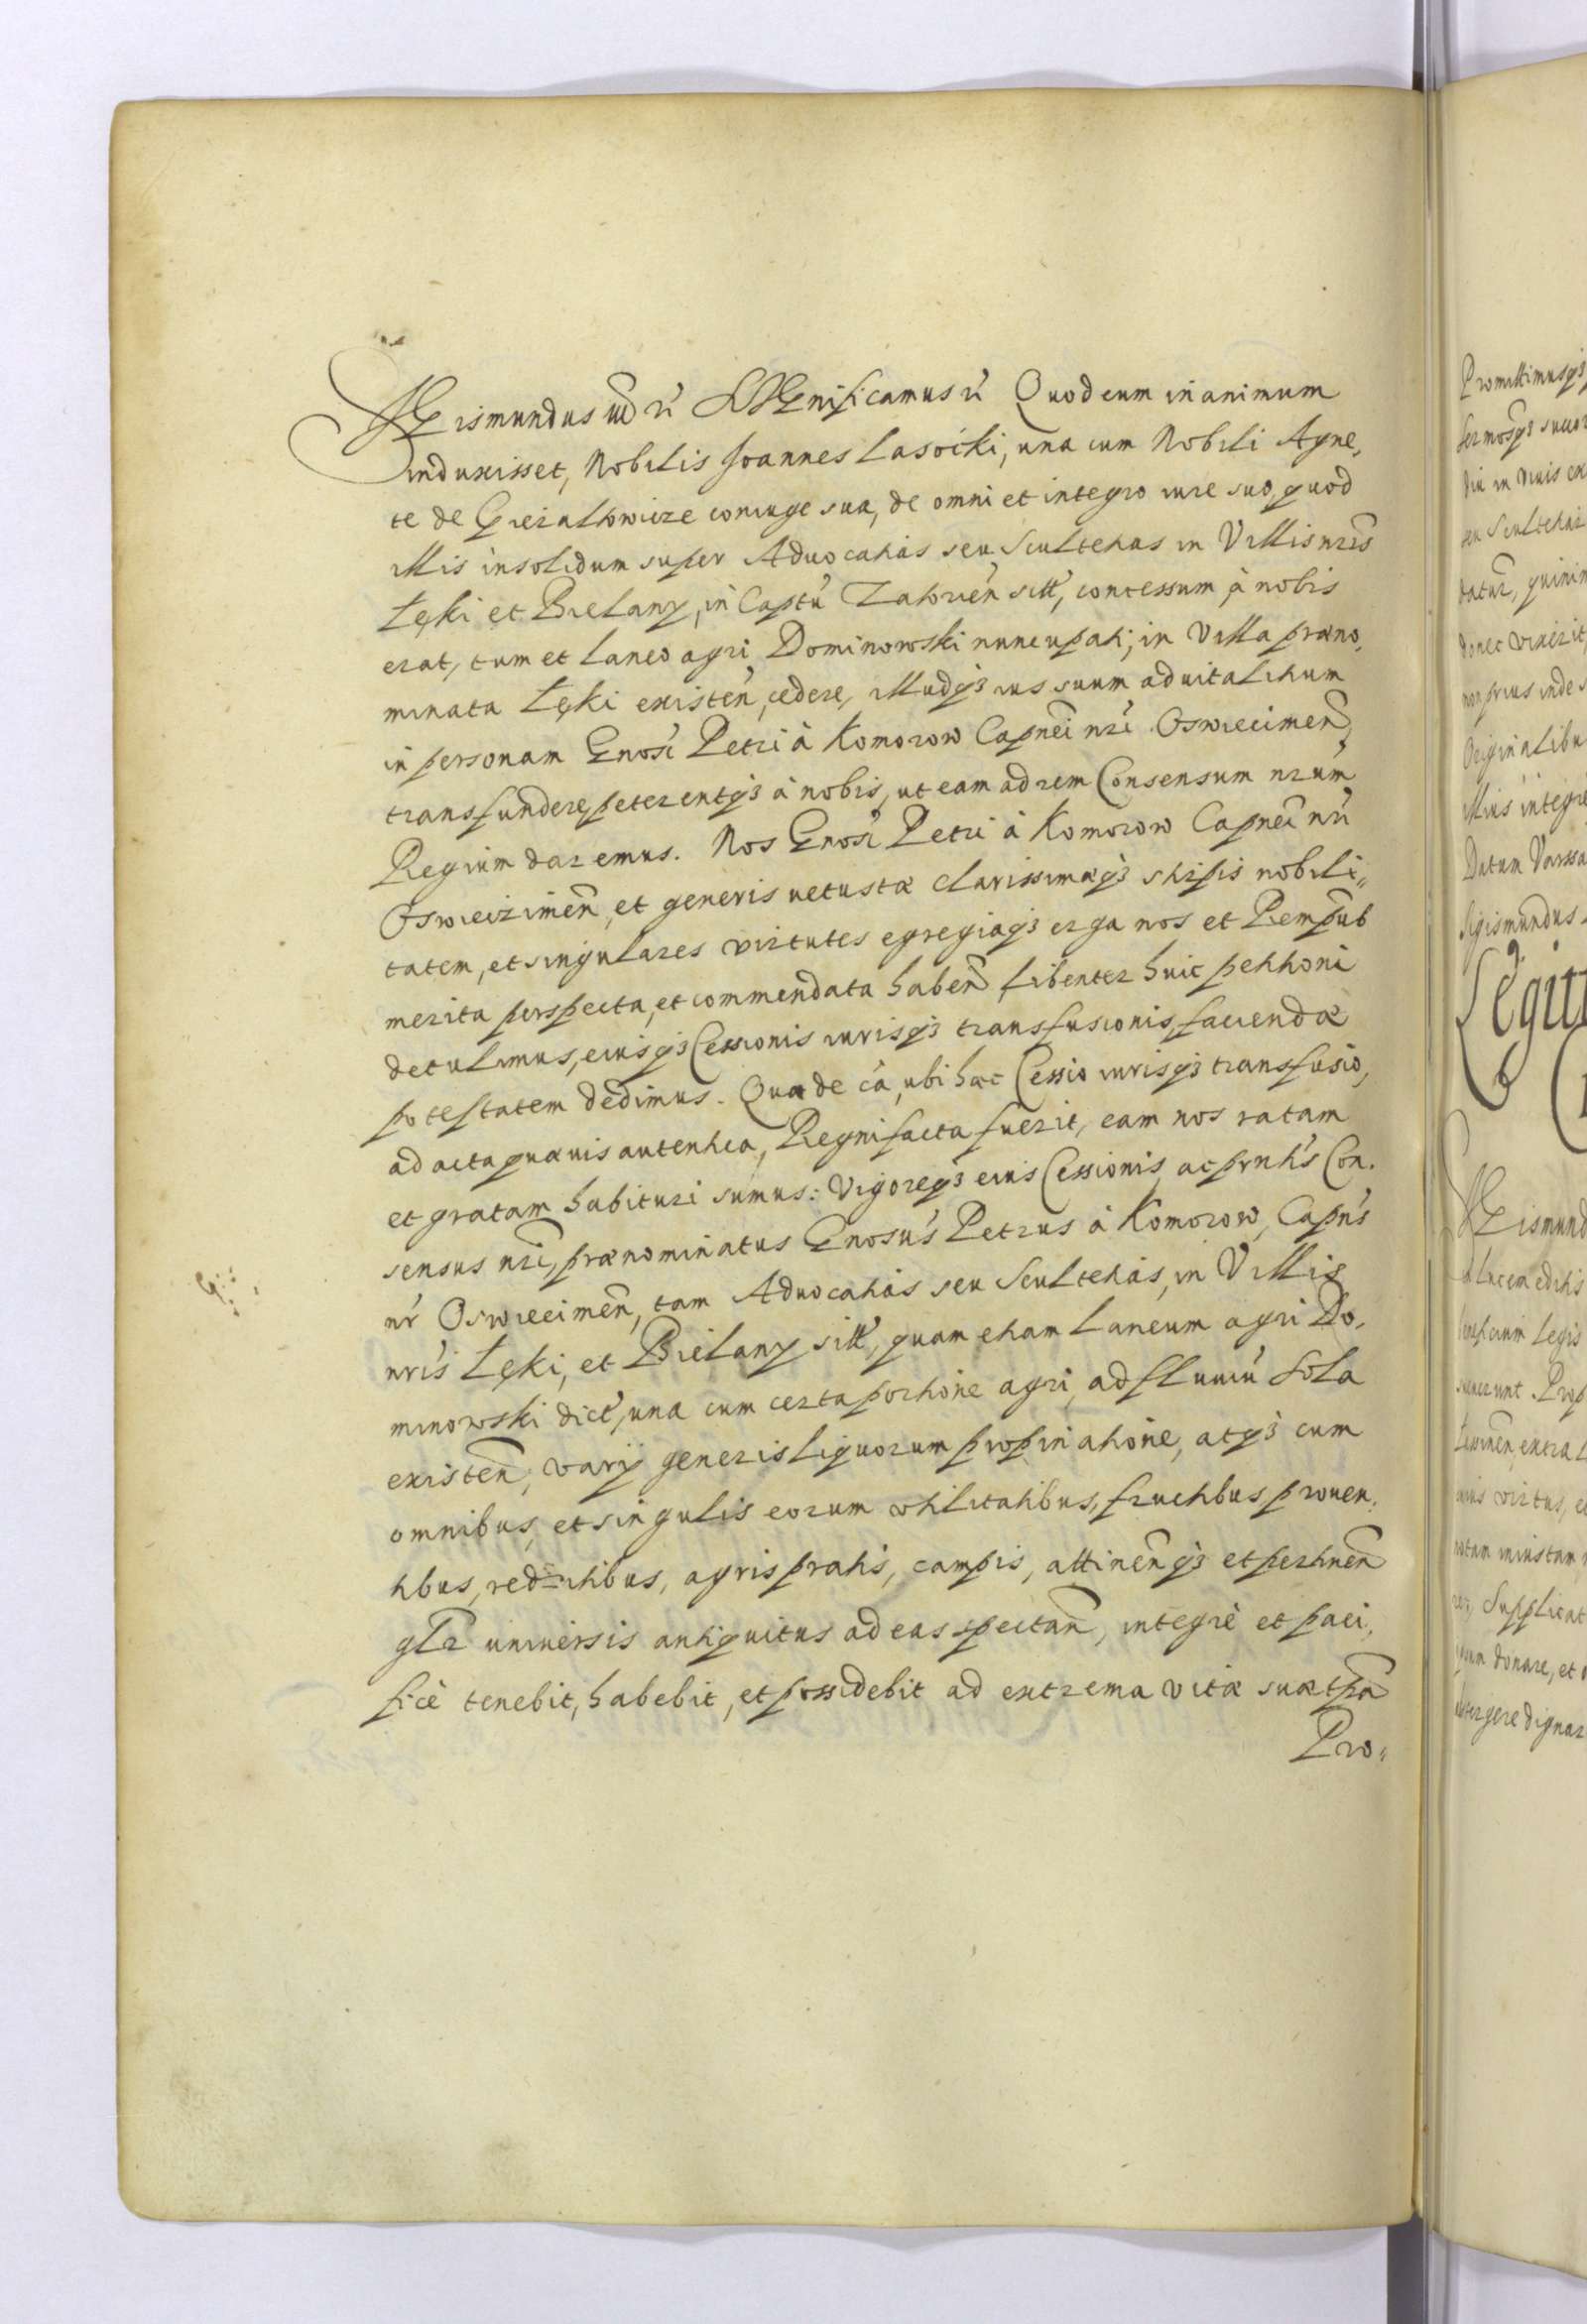 Sigismundus III Dei rć Significamus rć Quod cum in animum
induxisset, Nobilis Joannes Lasoćki, una cum Nobili Agne,
te de Gierałtowicze coniuge sua, de omni et integro iure suo, quod
illis insolidum super Advocatias seu Scultetias in Villis nris
Łęki et Bielany, in Captu Zatorien sitt, concessum à nobis
erat, tum et Laneo agri Dominowski nuncupati, in Villa præno,
minata Łęki existen, cedere, illudqȝ ius suum aduitalitium
in personam Gnosi Petri à Komorow Capnei nri Oswiecimen
transfundere, peterentqȝ à nobis, ut eam ad rem Consensum nrum
Regium daremus. Nos Gnosi Petri à Komorow Capnei nri
Oswieczimen, et generis uetustæ clarissimæqȝ stirpis nobili„
tatem, et singulares virtutes egregiaqȝ erga nos et Rempub
merita perspecta, et commendata haben, libenter huic petitioni
detulimus, eiusqȝ Cessionis iurisqȝ transfusionis faciendæ
potestatem dedimus. Qua de ca, ubi hæc Cessio iurisqȝ transfusio,
ad acta quæuis autentica, Regni facta fuerit, eam nos ratam
et gratam habituri sumus: Vigoreqȝ eius Cessionis ac prntis Con.
sensus nri, prænominatus Gnosus Petrus à Komorow, Capns
nr Oswiecimen, tam Advocatias seu Scultetias, in Villis
nris Łęki, et Bielany sitt, quam etiam Laneum agri Do,
minowski dict, una cum certa portione agri, ad fluuiu Sola
existen, varij generis liquorum propinatione, atqȝ cum
omnibus, et singulis eorum vtilitatibus, fructibus prouen,
tibus, reditibus, agris pratis, campis, attinenqȝ et pertinen
gltr uniuersis antiquitus ad eas spectan, integrè et paci,
ficè tenebit, habebit, et possidebit ad extrema vitæ suæ tpra
Pro„
Promittimusqȝ
Sermosqȝ succes
diu in viuis ex
seu Scultetias
datur, quinim
donec vixerit,
non prius inde
Originalibu
illius integre
Datum Varssa
Sigismundus
Legit
Sigismund
a lucem editis
Tenezinen, extra
Supplicat
donare, et
dignar